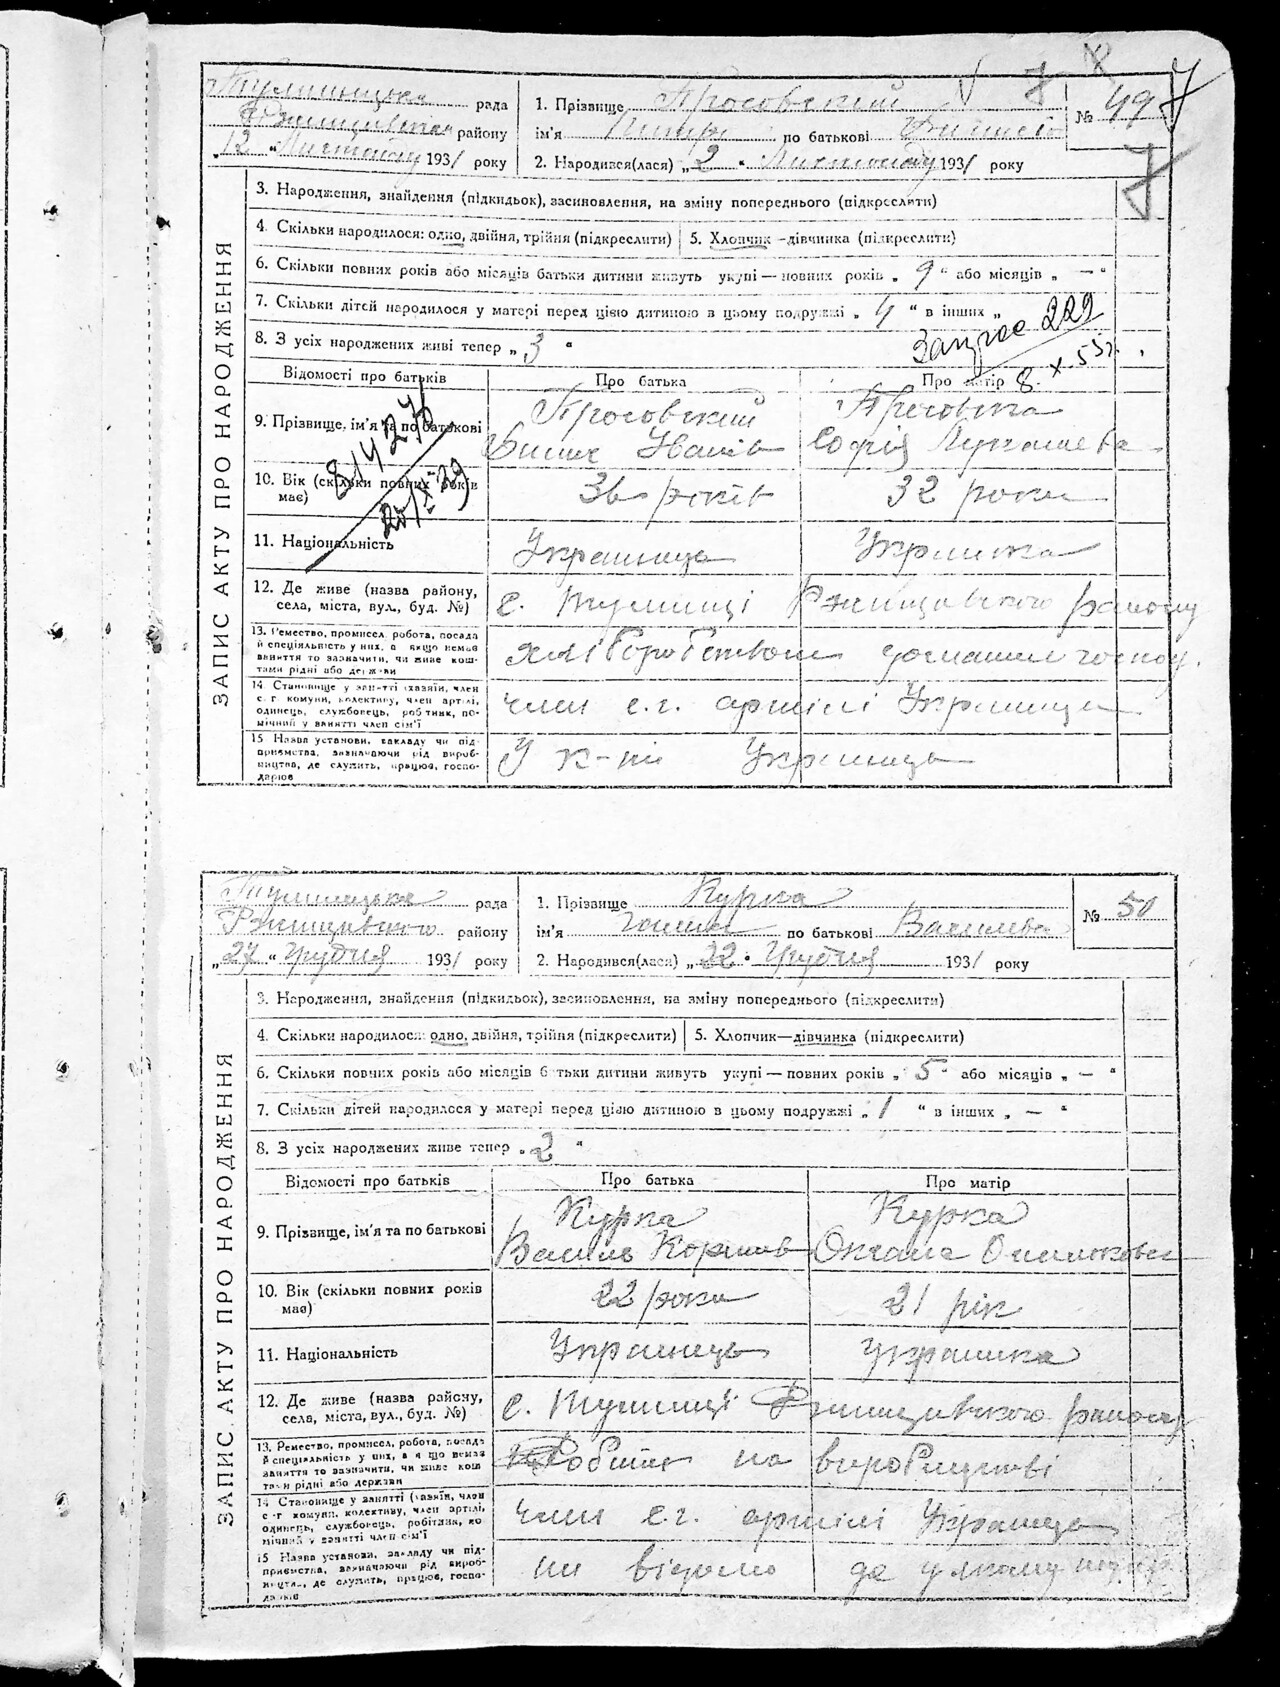 рада
району
"12" Листопаду 1931 року
1. Прізвище Тросовский
ім'я по батькові
2. Народився(лася) "2" Листопаду 1931 року
№ 49
7
7
7
ЗАПИС АКТУ ПРО НАРОДЖЕННЯ
3. Народження, знайдення (підкидьок), засиновлення, на зміну попереднього (підкреслити)
4. Скільки народилося: одно, двійня, трійня (підкреслити)
5. Хлопчик -дівчинка (підкреслити)
6. Скільки повних років або місяців батьки дитини живуть укупі — повних років „ 9 " або місяців „ — "
7. Скільки дітей народилося у матері перед цією дитиною в цьому подружжі „ 4 " в інших „
8. З усіх народжених живі тепер „ 3 "
229
8. X. 55 г.
Відомості про батьків
Про батька
Про матір
9. Прізвище, ім'я та по батькові
Тросовский
Іванів
Софія
10. Вік (скільки повних років має)
36 років
32 роки
11. Національність
Українець
Українка
12. Де живе (назва району, села, міста, вул., буд. №)
с. Ржищівского району
13. Ремество, промисел, робота, посада й спеціяльність у них, а якщо немає заняття то зазначити, чи живе коштами рідні або держави
хліборобством домашнє господ.
14 Становище у занятті (хазяїн, член с.-г комуни, колективу, член артілі, одинець, службовець, робітник, помічний у занятті член сім'ї
член с.г. артілі Українець
15 Назва установи, закладу чи підприємства, зазначаючи рід виробництва, де служить, працює, господарює
Українець
рада
Ржищівского району
"27" Грудня 1931 року
1. Прізвище Курка
ім'я по батькові Василева
2. Народився(лася) "22" Грудня 1931 року
№ 50
ЗАПИС АКТУ ПРО НАРОДЖЕННЯ
3. Народження, знайдення (підкидьок), засиновлення, на зміну попереднього (підкреслити)
4. Скільки народилося: одно, двійня, трійня (підкреслити)
5. Хлопчик—дівчинка (підкреслити)
6. Скільки повних років або місяців батьки дитини живуть укупі — повних років „ 5 " або місяців „ — "
7. Скільки дітей народилося у матері перед цією дитиною в цьому подружжі „ 1 " в інших „ — "
8. З усіх народжених живе тепер „ 2 "
Відомості про батьків
Про батька
Про матір
9. Прізвище, ім'я та по батькові
Курка
Василь
Курка
Оксана
10. Вік (скільки повних років має)
22 роки
21 рік
11. Національність
Українець
українка
12. Де живе (назва району, села, міста, вул., буд. №)
с. Ржищівского району
13. Ремество, промисел, робота, посада й спеціяльність у них, а якщо немає заняття то зазначити, чи живе коштами рідні або держави
Робітник на виробництві
14 Становище у занятті (хазяїн, член с.-г комуни, колективу, член артілі, одинець, службовець, робітник, помічний у занятті член сім'ї
член с.г. артілі Українець
15 Назва установи, закладу чи підприємства, зазначаючи рід виробництва, де служить, працює, господарює
відомо де у якому